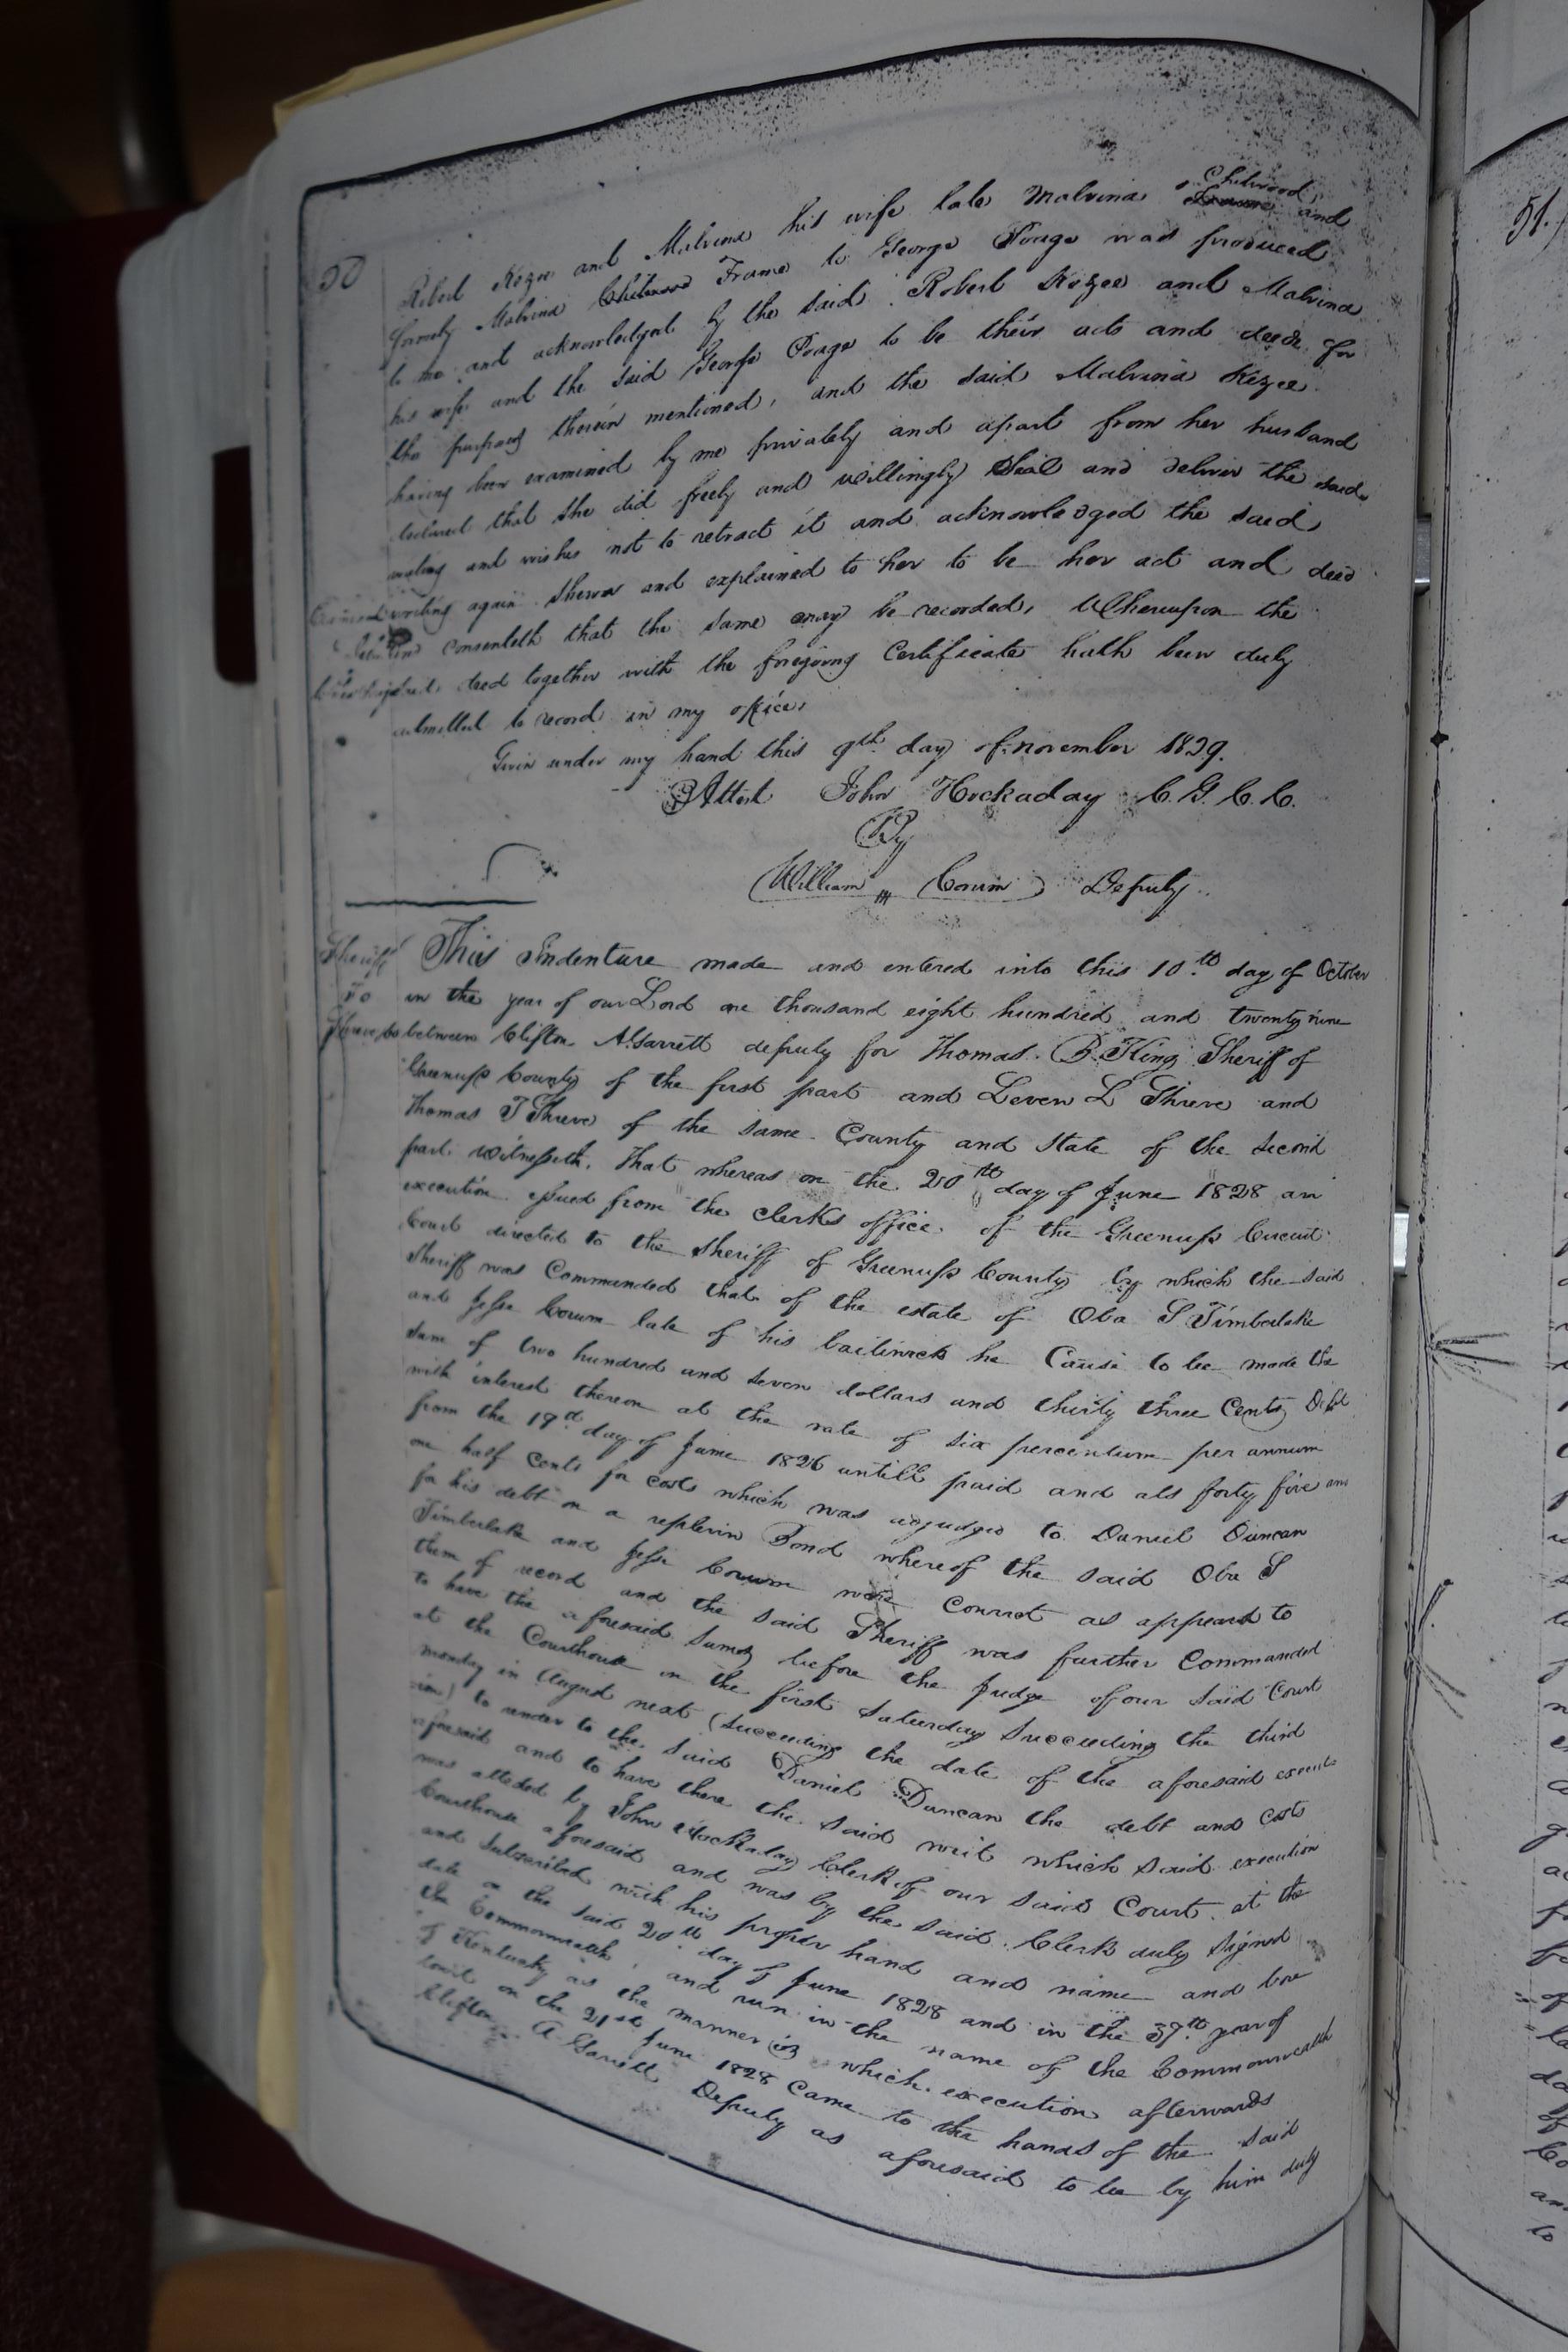 50
Robert Kezee and Malvina his wife late Malvina Chitwood and
formerly Malvina Chitwood Frame to George Poage was produced
to me and acknowledged by the said Robert Kezee and Malvina
his wife and the said George Poage to be their acts and deeds for
the purposes therein mentioned, and the said Malvina Kezee
having been examined by me privately and apart from her husband
declared that she did freely and willingly Seal and deliver the said
writing and wishes not to retract it and acknowledged the said
writing again shewn and explained to her to be her act and deed
and consenteth that the same may be recorded, Whereupon the
deed together with the foregoing Certificate hath been duly
admitted to record in my office,
Given under my hand this 9th day of november 1829.
Attest John Hockaday C. G. C. C.
By
William Corum Deputy
Sheriff
To
Shreves
This Indenture made and entered into this 10th day of October
in the year of our Lord one thousand eight hundred and twenty nine
between Clifton A Garrett deputy for Thomas B King Sheriff of
Greenup County of the first part and Leven L Shreve and
Thomas T Shreve of the same County and State of the second
part witnesseth, That whereas on the 20th day of June 1828 an
execution issued from the clerks office of the Greenup Circuit
Court directed to the sheriff of Greenup County by which the said
Sheriff was Commanded that of the estate of Oba S Timberlake
and Jesse Corum late of his bailiwick he Cause to be made the
sum of two hundred and seven dollars and thirty three Cents Debt
with interest thereon at the rate of six percentum per annum
from the 19th day of June 1826 untill paid and als forty five and
one half Cents for costs which was adjudged to Daniel Duncan
for his debt on a replevin Bond whereof the said Oba S
Timberlake and Jesse Corum were Convict as appears to
them of record and the said Sheriff was further Commanded
to have the aforesaid sums before the Judge of our said Court
at the Courthouse on the first Saturday succeeding the third
monday in August next (succeeding the date of the aforesaid
to render to the said Daniel Duncan the debt and Costs
aforesaid and to have there the said writ which said execution
was attested by John Hockaday Clerk of our said Court at the
Courthouse aforesaid and was by the said Clerk duly signed
and Subscribed with his proper hand and name and bore
date on the said 20th day of June 1828 and in the 37th year of
the Commonwealth, and run in the name of the Commonwealth
of Kentucky as the manner is which execution afterwards
towit on the 21st June 1828 Came to the hands of the said
Clifton A Garrett Deputy as aforesaid to be by him duly
51.